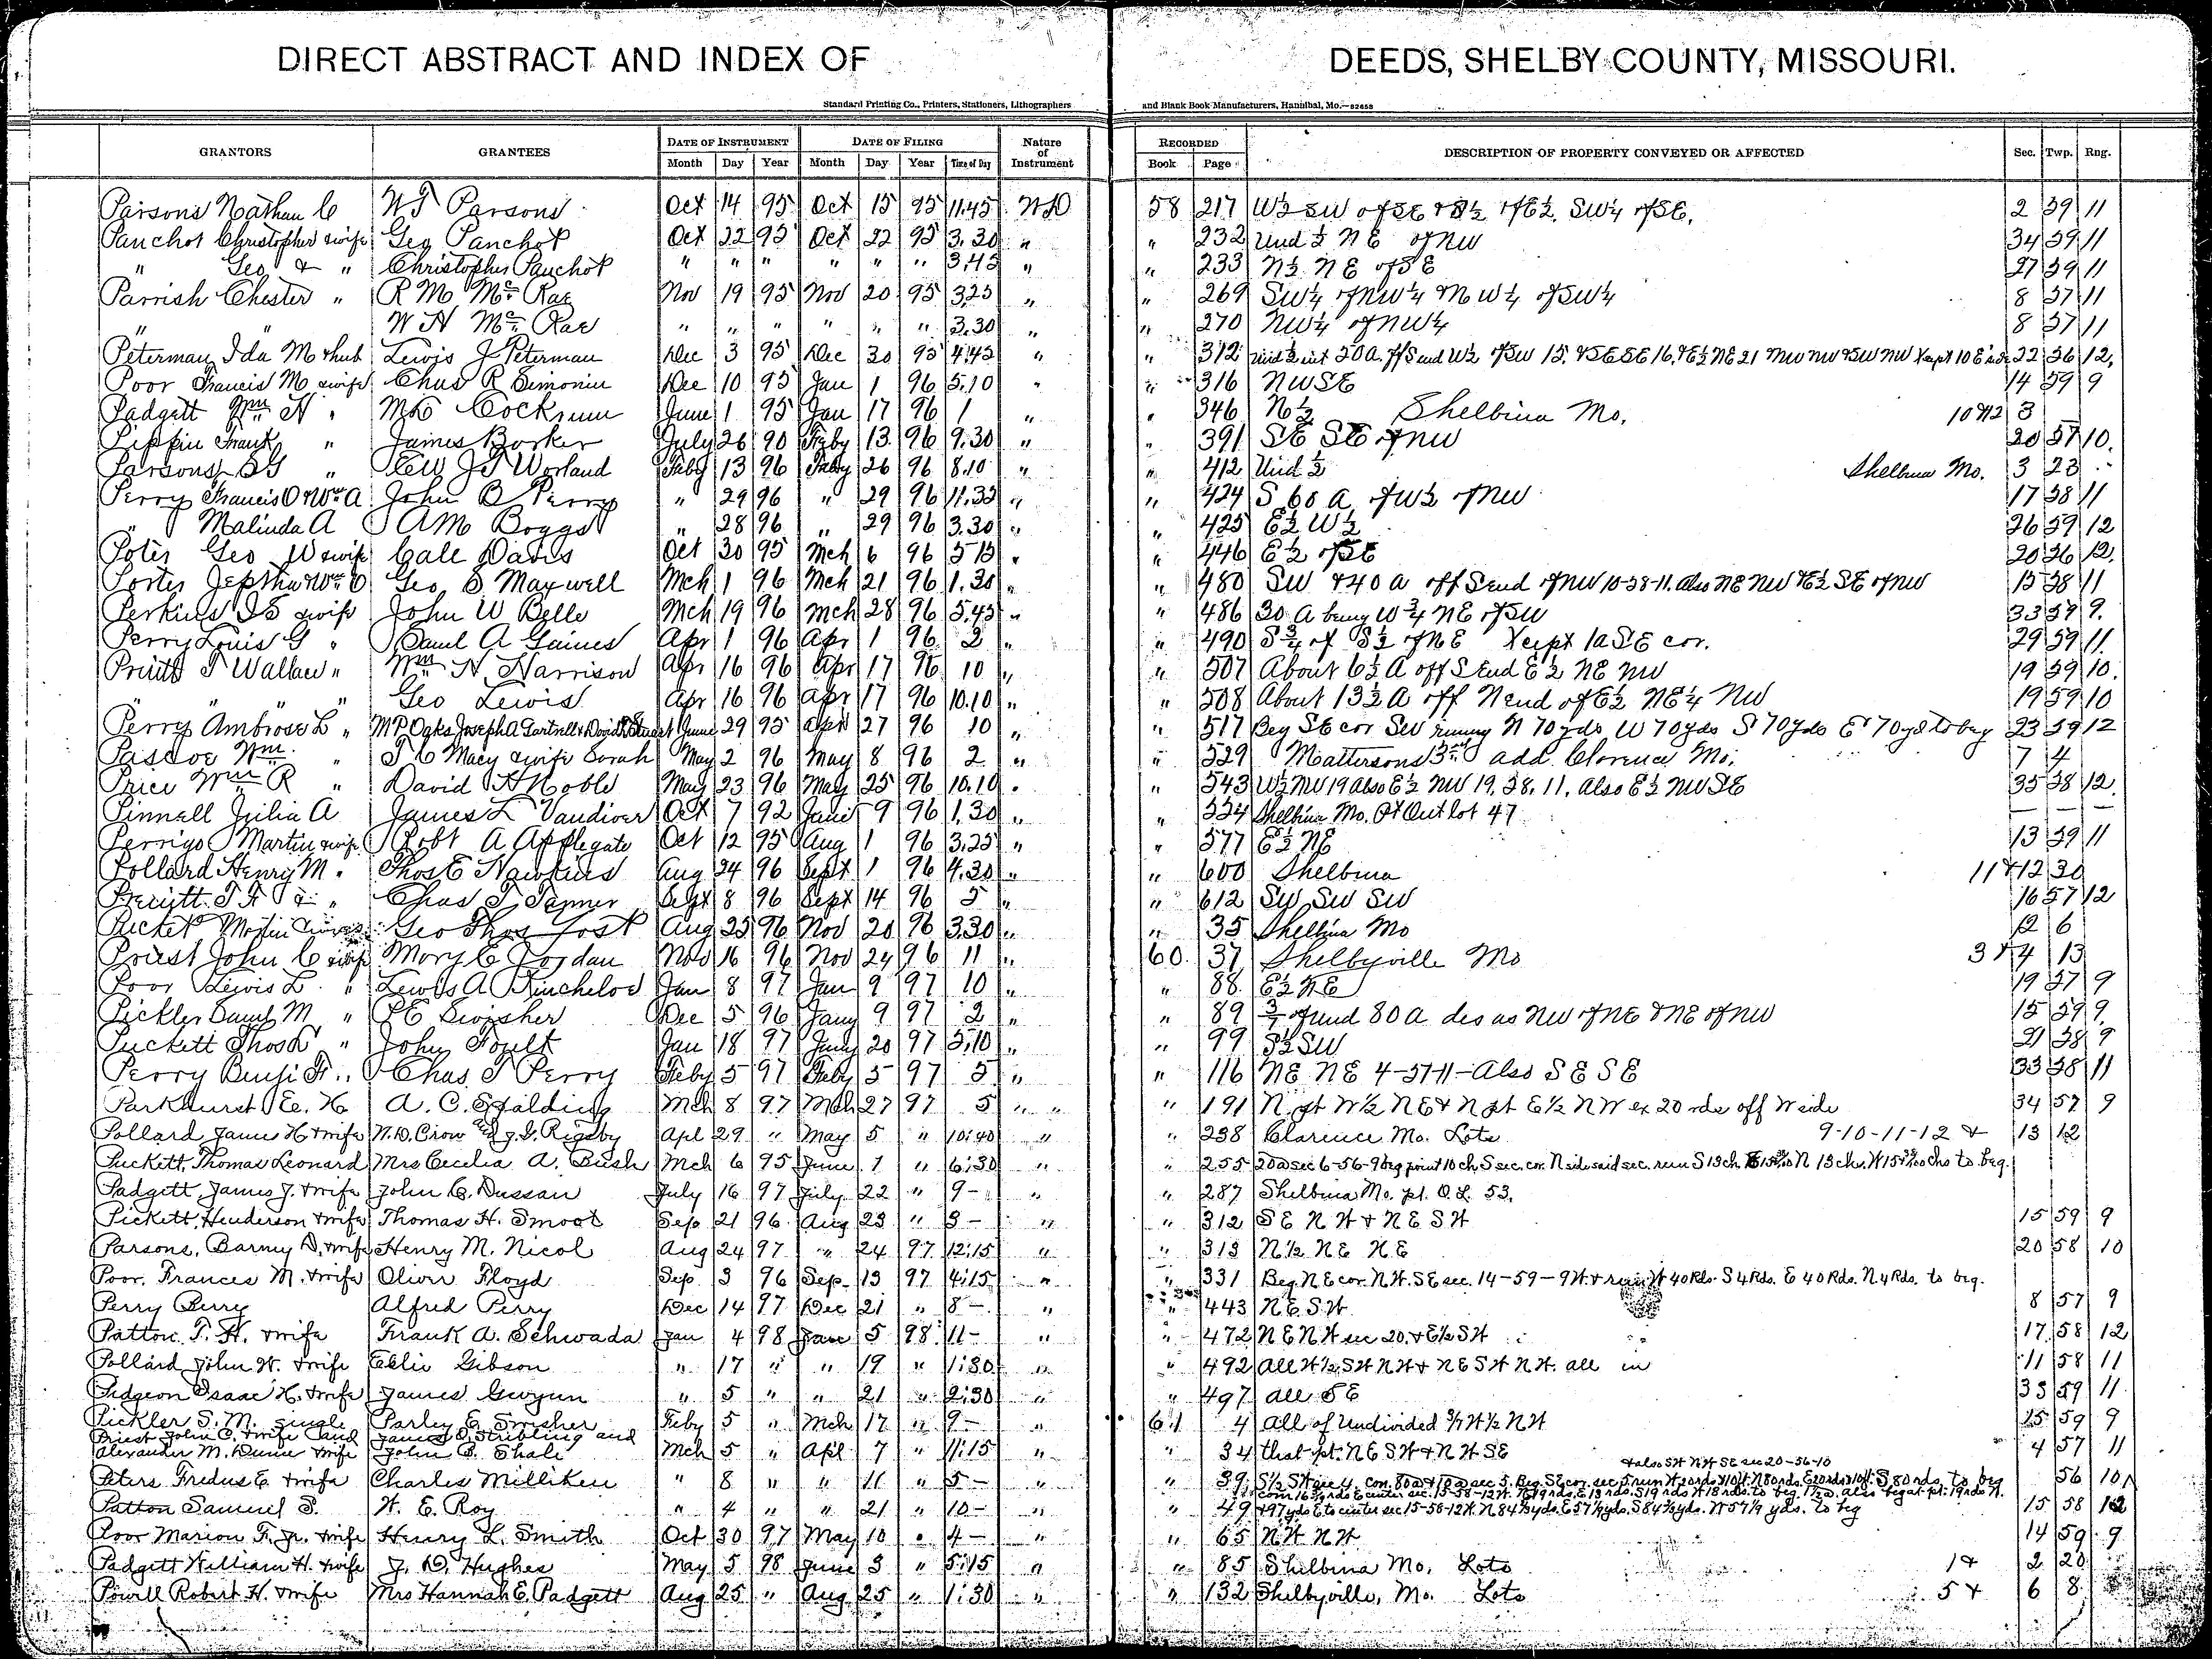 DIRECT ABSTRACT AND INDEX OF DEEDS, SHELBY COUNTY, MISSOURI.
Standard Printing Co., Printers, Stationers, Lithographers and Blank Book Manufacturers, Hannibal, Mo.—82658
GRANTORS GRANTEES DATE OF INSTRUMENT DATE OF FILING Nature of Instrument RECORDED DESCRIPTION OF PROPERTY CONVEYED OR AFFECTED Sec. Twp. Rng.
Month Day Year Month Day Year Time of Day Book Page
Parsons Nathan C W T Parsons Oct 14 95 Oct 15 95 11.45 WD 58 217 2 59 11
Panchot Christopher & wife Geo Panchot Oct 22 95 Oct 22 95 3.30 " " 232 Und ½ NE of NW 34 59 11
" Geo & " Christopher Panchot " " " " " " 3.45 " " 233 N½ NE of SE 27 59 11
Parrish Chester " R M McRae Nov 19 95 Nov 20 95 3.25 " " 269 SW¼ of NW¼ & NW¼ of SW¼ 8 57 11
" W H McRae " " " " " " 3.30 " " 270 NW¼ of NW¼ 8 57 11
Peterman Ida M & hub Lewis J Peterman Dec 3 95 Dec 30 95 4.45 " " 312 22 56 12
Poor Francis M & wife Chas R Simonin Dec 10 95 Jan 1 96 5.10 " " 316 NW SE 14 59 9
Padgett Wm H " Cockrum June 1 95 Jan 17 96 1 " " 346 N½ Shelbina Mo. 3
Pippin Frank " James Barker July 26 90 Feby 13 96 9.30 " " 391 SE SE of NW 20 57 10
Parsons " J T Worland Feby 13 96 Feby 26 96 8.10 " " 412 Und ½ Shelbina Mo. 3 23
Perry Francis O & Wm A John B Perry " 29 96 " 29 96 11.35 " " 424 S 60 a of W½ of NW 17 58 11
" Malinda A A M Boggs " 28 96 " 29 96 3.30 " " 425 E½ W½ 26 59 12
Poter Geo W & wife Cale Davis Oct 30 95 Mch 6 96 5 15 " " 446 E½ of SE 20 56 12
Porter Jeptha & Wm O Geo S Maxwell Mch 1 96 Mch 21 96 1.30 " " 480 SW & 40 a off S end of NW 10-58-11. also NE NW & E½ SE of NW 15 58 11
Perkins & wife John W Belle Mch 19 96 Mch 28 96 5.45 " " 486 30 A being W¾ NE of SW 33 59 9
Perry Louis G " Paul A Gaines Apr 1 96 Apr 1 96 2 " " 490 S¾ of S½ of NE Xcept 1a SE cor. 29 59 11
Pruitt T Wallace " Wm H Harrison Apr 16 96 Apr 17 96 10 " " 507 About 6½ A off S end E½ NE NW 19 59 10
" " " Geo Lewis Apr 16 96 apr 17 96 10.10 " " 508 About 13½ A off N end of E½ NE¼ NW 19 59 10
Perry Ambrose L " June 29 95 april 27 96 10 " " 517 Beg SE cor SW runing N 70 yds W 70 yds S 70 yds E 70 yds to beg 23 59 12
Pascoe Wm " T C Macy & wife Sarah May 2 96 May 8 96 2 " " 529 Mattersons 3rd add Clarence Mo. 7 4
Price Wm R " David H Noble May 23 96 May 25 96 10.10 " " 543 W½ NW 19 Also E½ NW 19, 58, 11, Also E½ NW SE 35 58 12
Pinnell Julia A James L Vandiver Oct 7 92 June 9 96 1.30 " " 554 Shelbina Mo. Pt Out lot 47 — — —
Perrigo Martin & wife Robt A Applegate Oct 12 95 Aug 1 96 3.25 " " 577 E½ NE 13 59 11
Pollard Henry M " Thos E Hawkins Aug 24 96 Sept 1 96 4.30 " " 600 Shelbina 11 & 12 30
Pruitt " Chas T Tanner Sept 8 96 Sept 14 96 5 " " 612 SW SW SW 16 57 12
Picket Martin Geo Thos Yost Aug 25 96 Nov 20 96 3.30 " " 35 Shelbina Mo 12 6
Priest John C & wife Mary E Jordan Nov 16 96 Nov 24 96 11 " 60 37 Shelbyville Mo 3 & 4 13
Poor Lewis L " Lewis A Kincheloe Jan 8 97 Jan 9 97 10 " " 88 E½ NE 19 57 9
Pickler Saml M " P E Swisher Dec 5 96 Jany 9 97 2 " " 89 80 a des as NW of NE & NE of NW 15 59 9
Puckett Thos L " John Foult Jan 18 97 Jany 20 97 5.10 " " 99 S½ SW 21 58 9
Perry Benj F " Chas T Perry Feby 5 97 Feby 5 97 5 " " 116 NE NE 4-57-11—Also SE SE 33 58 11
Parkhurst E. H. A. C. Spalding Mch 8 97 Mch 27 97 5 " " " 191 N. pt W½ NE & N pt E½ NW ex 20 rds off W side 34 57 9
Pollard James H & wife N. D. Crow and J. D. Rigsby Apl 29 " May 5 " 10:40 " " 238 Clarence Mo. Lots 9-10-11-12 & 13 12
Puckett, Thomas Leonard Mrs Cecelia A. Bush Mch 6 95 June 1 " 6:30 " " 255
Padgett James J. & wife John C. Dussan July 16 97 July 22 " 9- " " 287 Shelbina Mo. pt. O.L. 53.
Pickett, Henderson & wife Thomas H. Smoot Sep 21 96 Aug 23 " 3- " " 312 SE NW & NE SW 15 59 9
Parsons, Barny D. & wife Henry M. Nicol Aug 24 97 " 24 97 12:15 " " 313 N½ NE NE 20 58 10
Poor, Frances M. & wife Oliver Floyd Sep 3 96 Sep 13 97 4:15 " " 331 Beg. NE cor. NW. SE sec. 14-59-9 W. & run W 40 Rds. S 4 Rds. E 40 Rds. N 4 Rds. to beg.
Perry Berry Alfred Perry Dec 14 97 Dec 21 " 8- " " 443 NE SW 8 57 9
Patton T. H. & wife Frank A. Schwada Jan 4 98 Jan 5 98 11- " " 472 NE NW sec 20. & E½ SW 17 58 12
Pollard John W. & wife Ellie Gibson " 17 " " 19 " 1:30 " " 492 All W½ SW NW & NE SW NW. all in 11 58 11
Pidgeon Isaac H. & wife James Gwynn " 5 " " 21 " 2:30 " " 497 all SE 33 59 11
Pickler S. M. single Parley E. Swisher Feby 5 " Mch 17 " 9- " 61 4 All of Undivided 3/7 W½ NW 15 59 9
Priest John C. & wife and James D. Stribling and
Alexander M. Dunn & wife John B. Shale Mch 5 " Apl 7 " 11:15 " " 34 that pt. NE SW & NW SE 4 57 11
& also SW NW SE sec 20-56-10
Peters Fredus E. & wife Charles Milliken " 8 " " 11 " 5- " " 39 56 10
Patton Samuel S. W. E. Roy " 4 " " 21 " 10- " " 49 15 58 12
Poor Marion F. Jr. & wife Henry L. Smith Oct 30 97 May 10 " 4- " " 65 NW NW 14 59 9
Padgett William H. & wife J. D. Hughes May 5 98 June 3 " 5:15 " " 85 Shelbina Mo. Lots 1 & 2 20
Powell Robert H. & wife Mrs Hannah E. Padgett Aug 25 " Aug 25 " 1:30 " " 132 Shelbyville, Mo. Lots 5 & 6 8